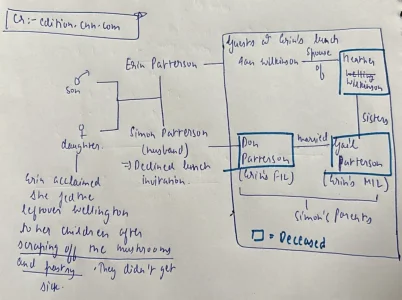 Cr:- edition.cnn.com
Guests at Erin's lunch
Erin Patterson
Ian Wilkinson
Spouse of
Heather
Wilkinson
son
sisters
daughter
Simon Patterson
(husband)
⇒ Declined lunch
invitation.
Don
Patterson
(Erin's FIL)
married
Gail
Patterson
(Erin's MIL)
Simon's parents
= Deceased
Erin acclaimed
she fed the
leftover wellington
to her children after
scraping off the mushrooms
and pastry. They didn't get
sick.